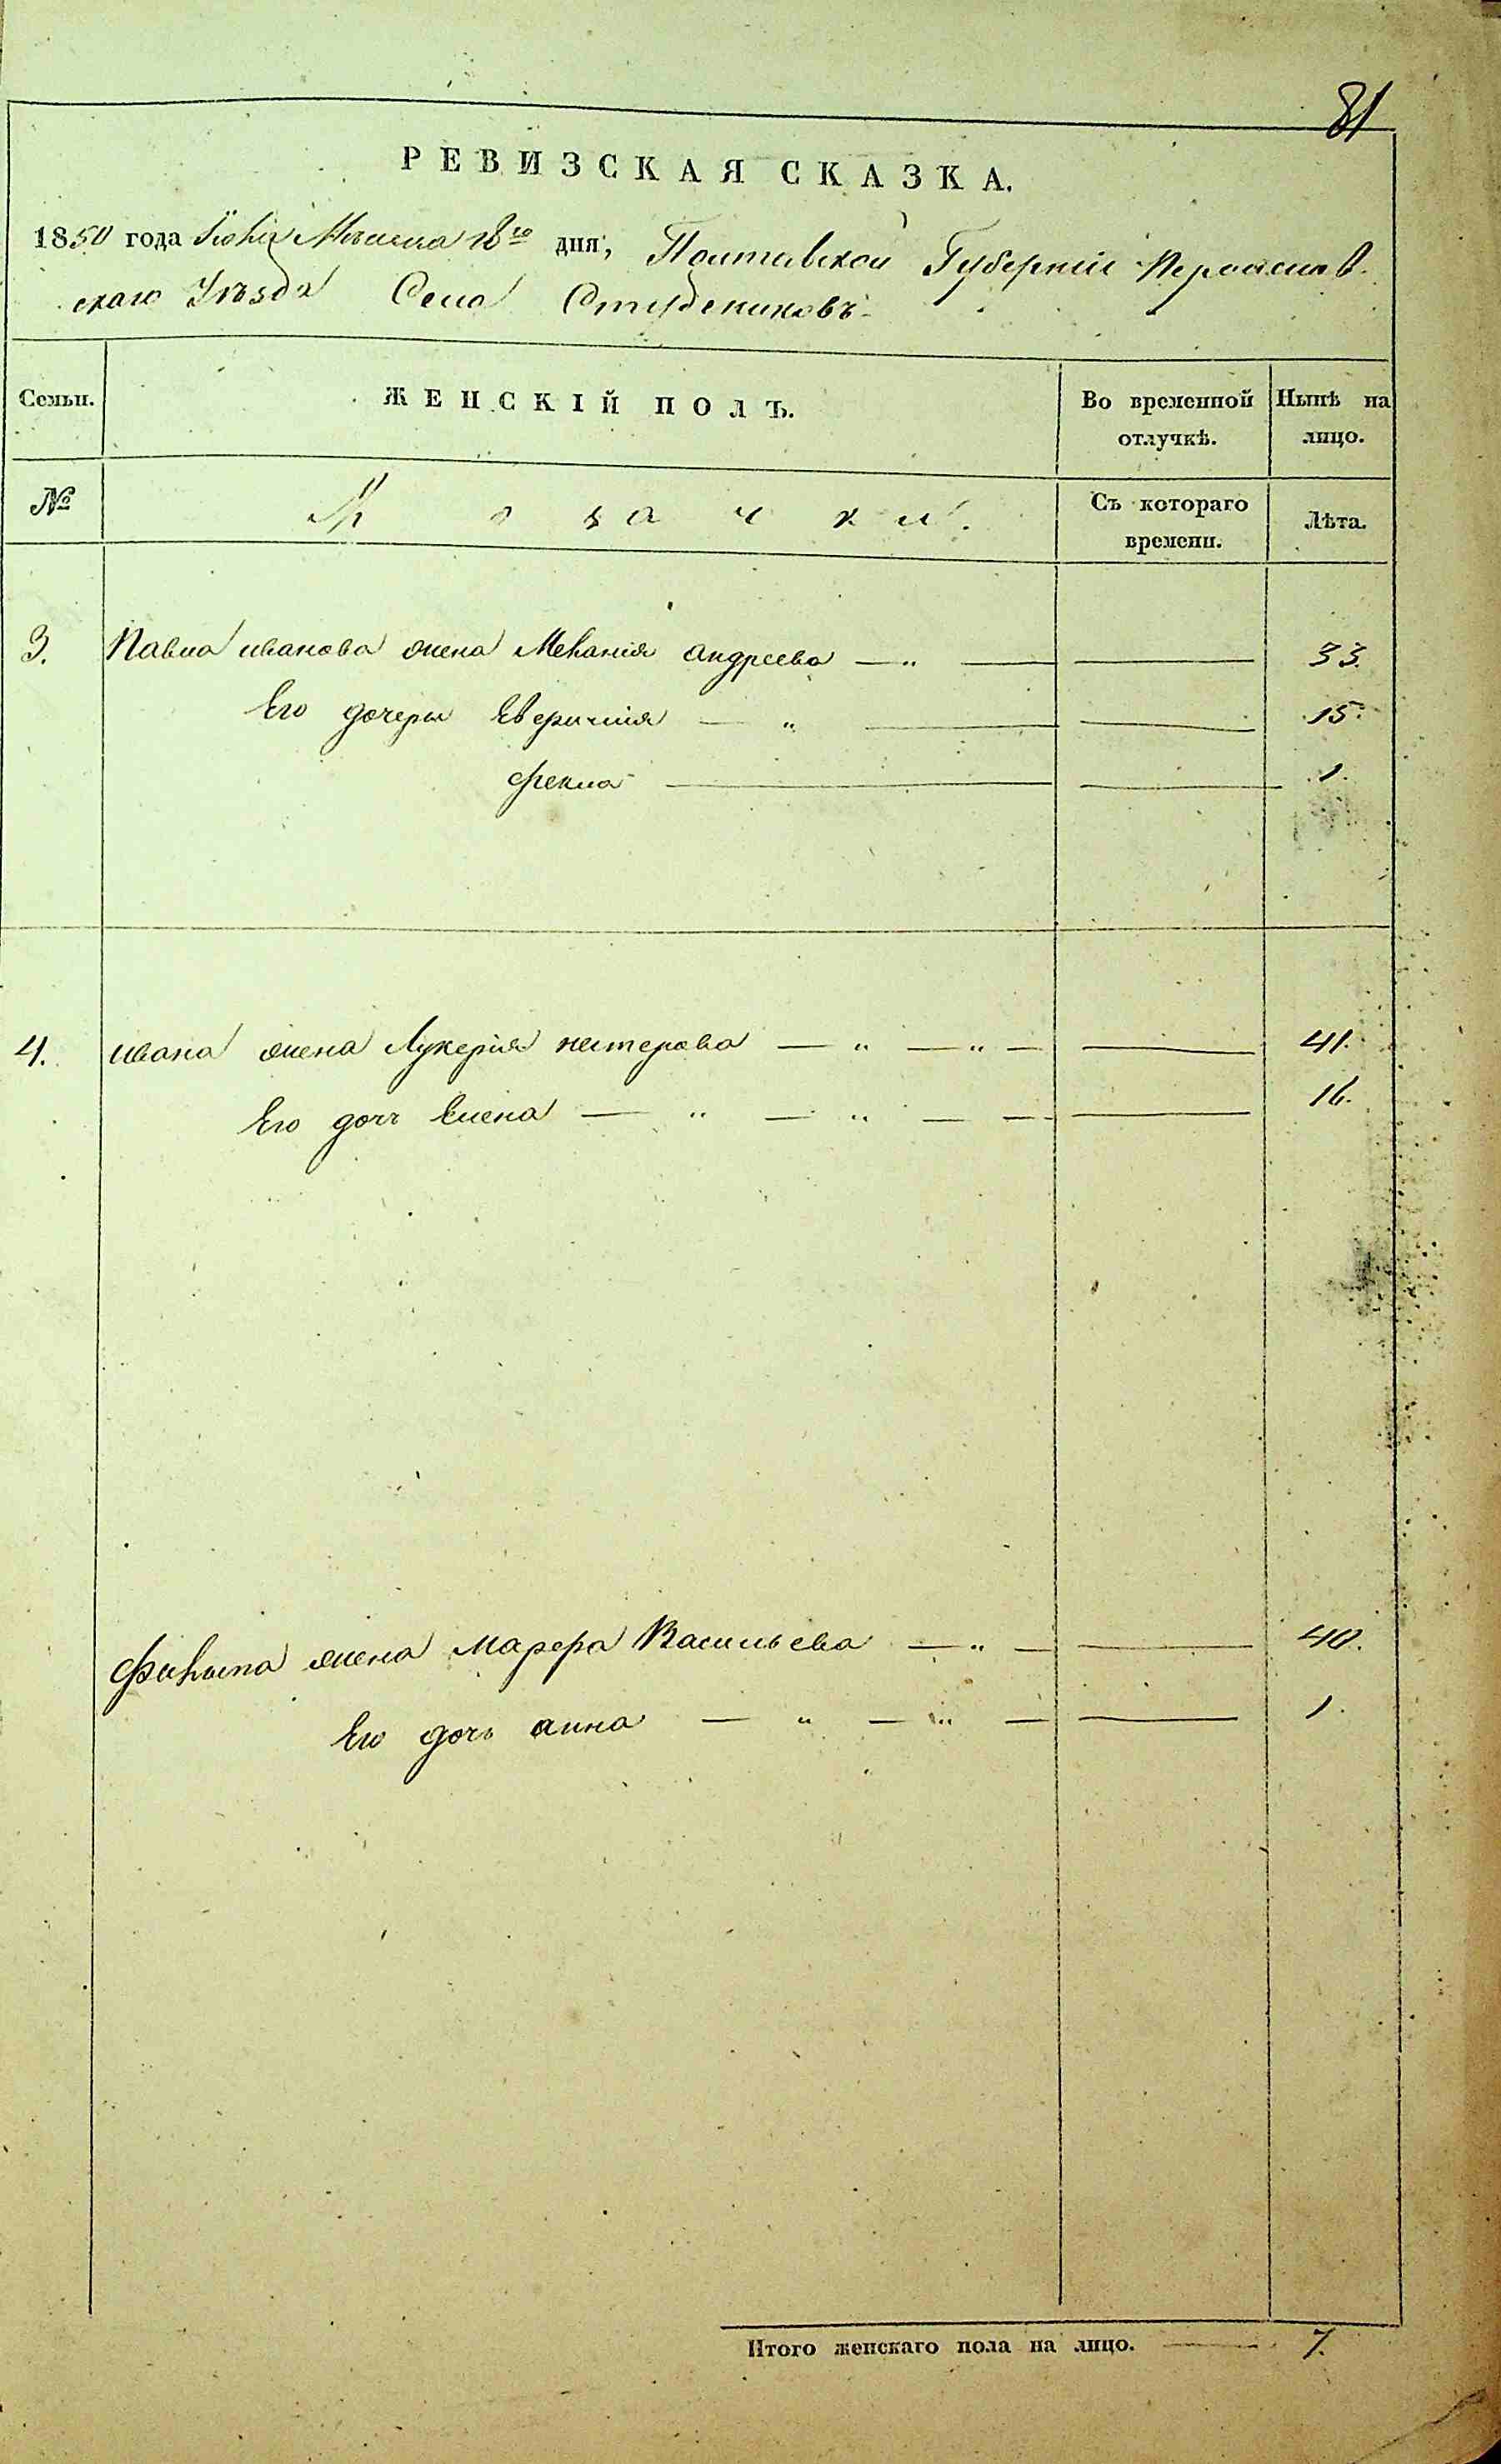 81
РЕВИЗСКАЯ СКАЗКА.
1850 года Іюня Мѣсяца 18го дня, Полтавской Губерніи Переяслав-
скаго Уѣзда Села Студениковъ
Семьи.
ЖЕНСКІЙ ПОЛЪ.
Во временной отлучкѣ.
Нынѣ на лицо.
№
Козачки.
Съ котораго времени.
Лѣта.
3. Павла иванова жена Меланія андреева — „ — — 33.
Его дочери Евфимія — „ — — 15.
Фекла — — 1.
4. ивана жена Лукерія нестерова — „ — „ — — 41.
Его дочь Елена — „ — „ — — — 16.
Филипа жена марфа Васильева — „ — — 40.
Его дочь анна — „ — „ — — 1.
Итого женскаго пола на лицо. — 7.